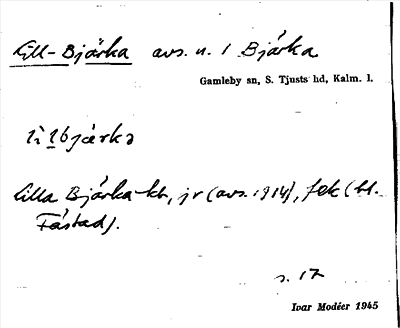 Lill-Bjärka avs. u. 1 Bjärka
Gamleby sn, S. Tjusts hd, Kalm. l.
lilla Bjärka-kb, jr (avs. 1914), fek (bl.
Fästad).
s. 17
Ivar Modéer 1945